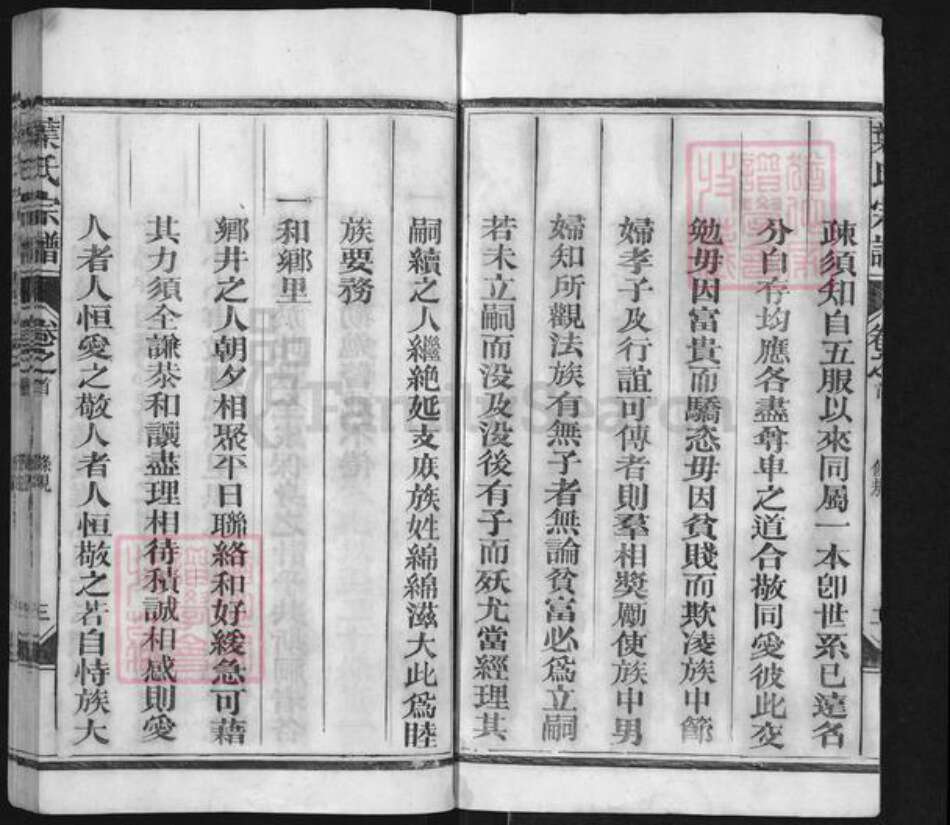 疎須知自五服以來同屬一本卽世系已遠名
分自存均應各盡尊卑之道合敬同愛彼此交
勉毋因富貴而驕恣毋因貧賤而欺凌族中節
婦孝子及行誼可傳者則羣相獎勵使族中男
婦知所觀法族有無子者無論貧富必爲立嗣
若未立嗣而没及没後有子而殀尤當經理其
嗣續之人繼絶延支庶族姓綿綿滋大此爲睦
族要務
一和鄉里
鄉井之人朝夕相聚平日聯絡和好緩急可藉
其力須全謙恭和讓盡理相待積誠相感則愛
人者人恒愛之敬人者人恒敬之若自恃族大
葉氏宗譜
卷之首
條規
三